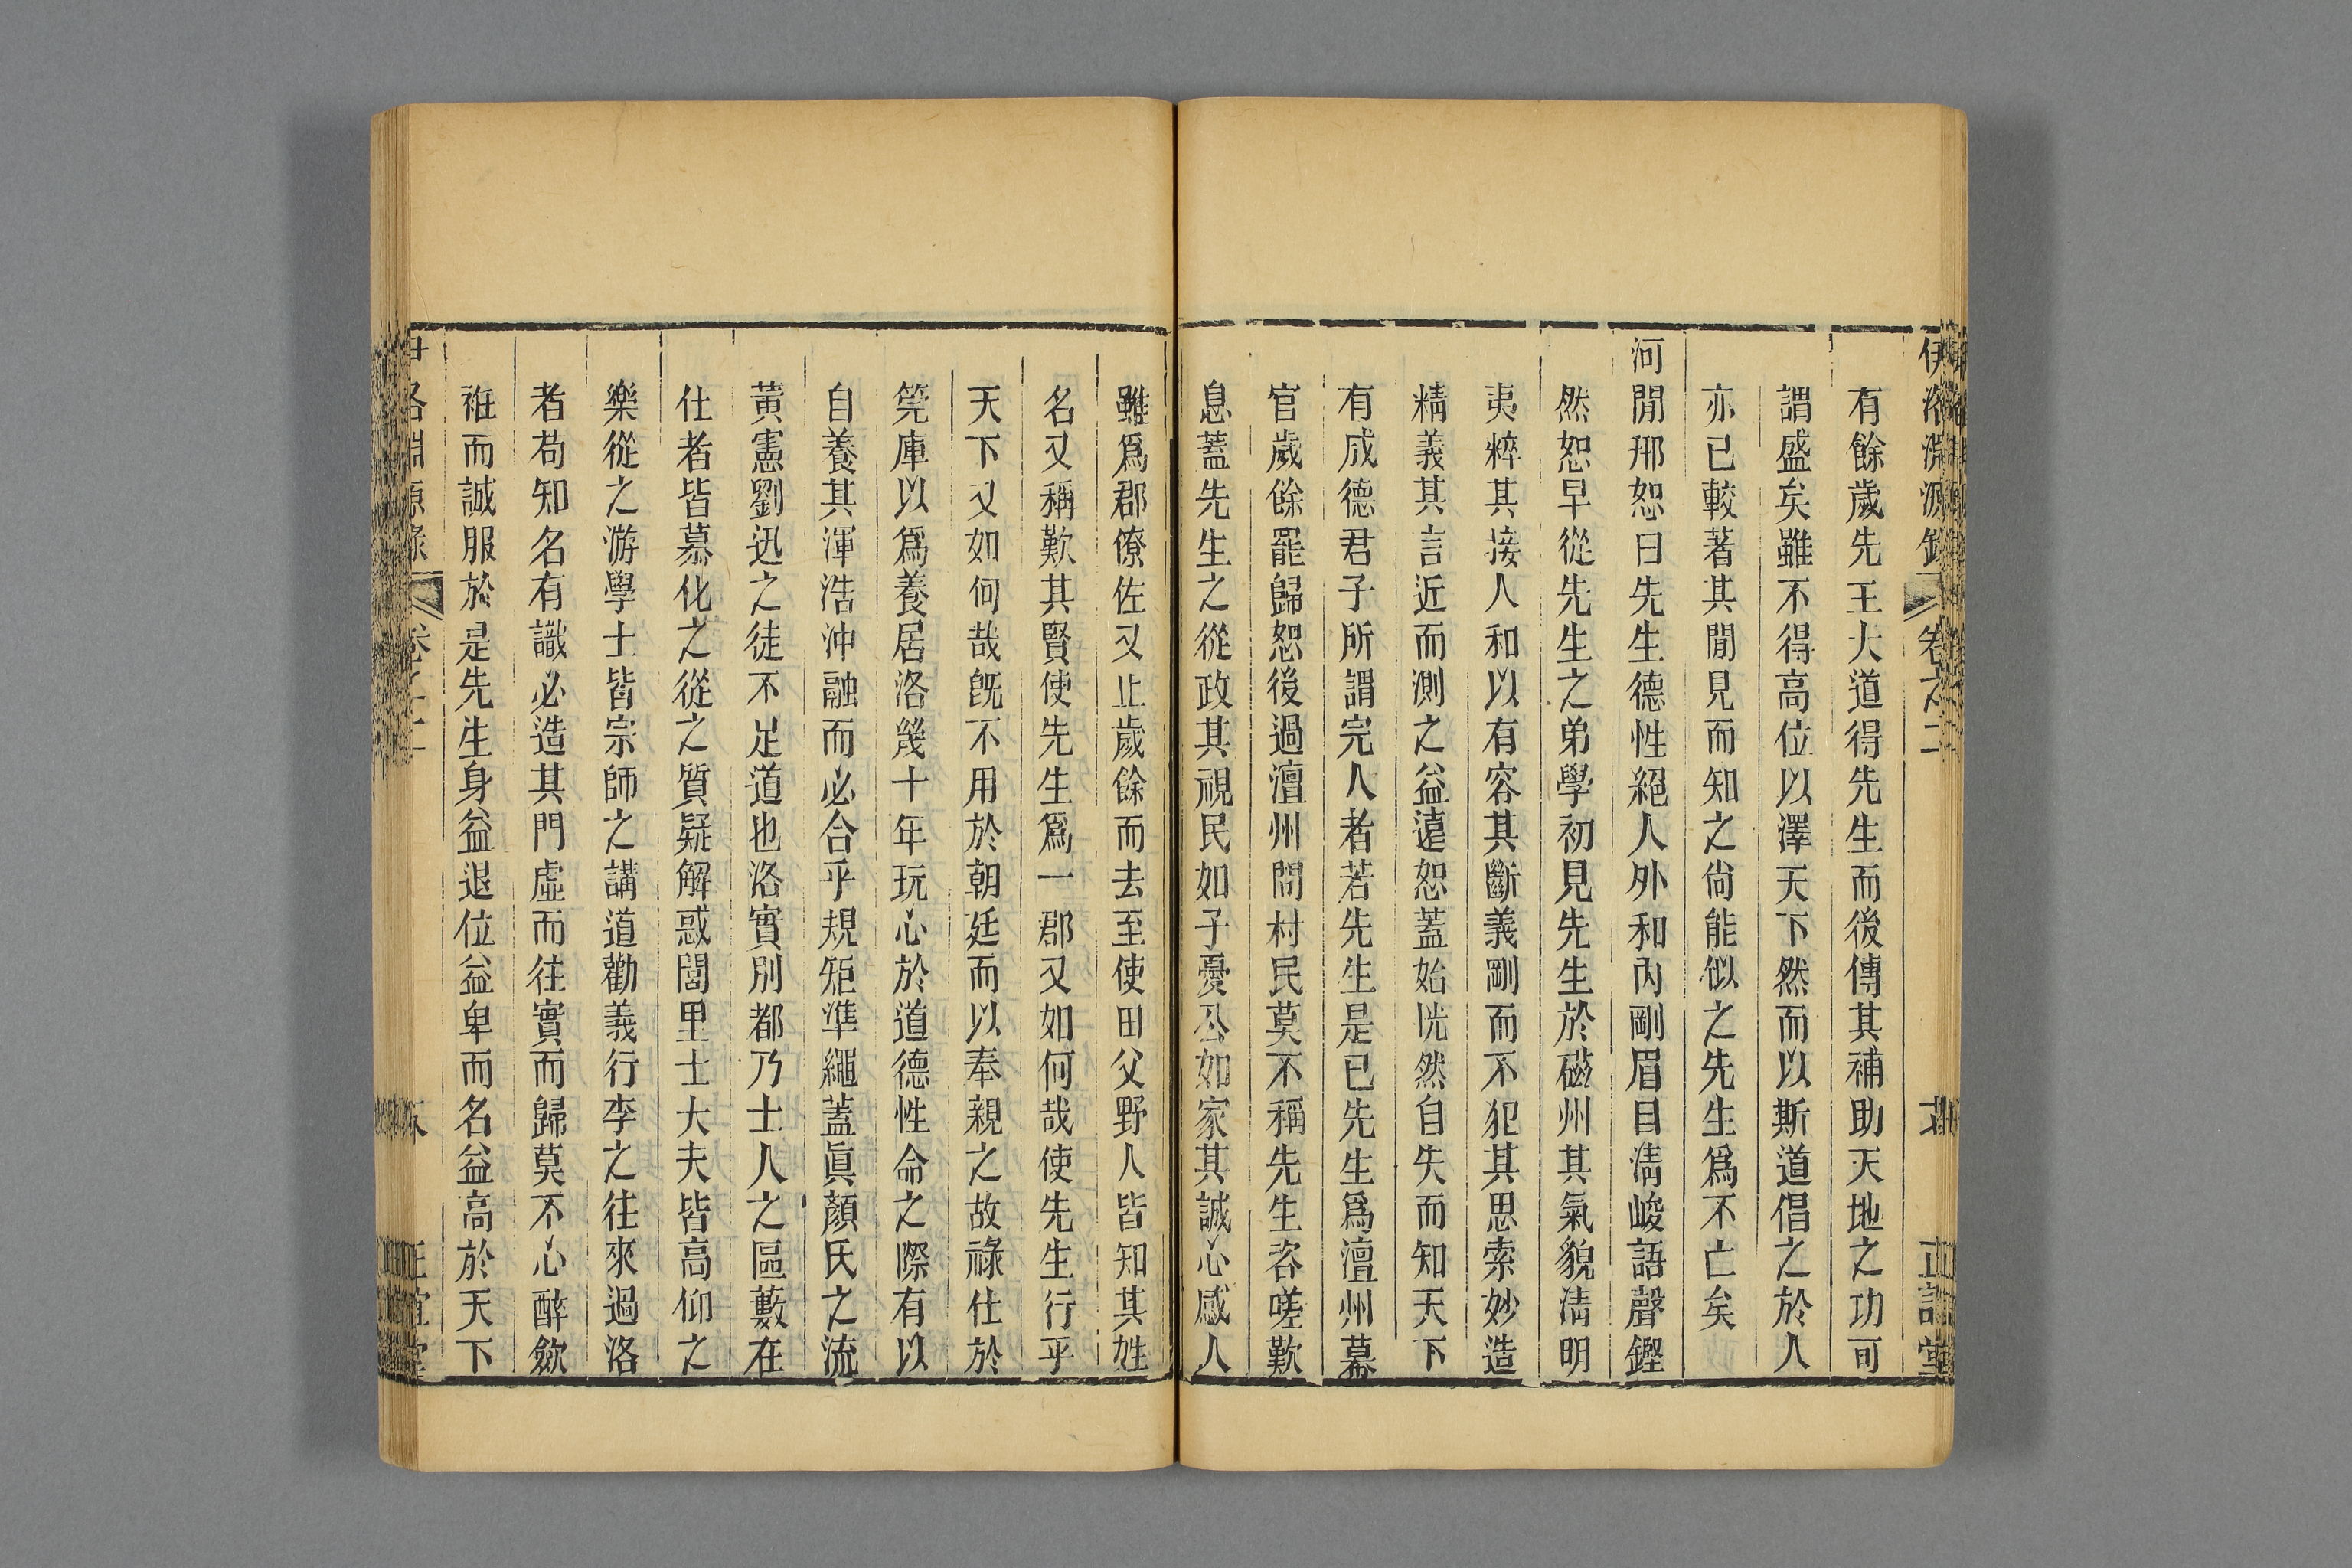 伊洛淵源錄 卷之二 正誼堂
有餘歲先王大道得先生而後傳其補助天地之功可
謂盛矣雖不得高位以澤天下然而以斯道倡之於人
亦已較著其聞見而知之尙能似之先生爲不亡矣
河閒邢恕曰先生德性絕人外和內剛眉目淸峻語聲鏗
然恕早從先生之弟學初見先生於磁州其氣貌淸明
夷粹其接人和以有容其斷義剛而不犯其思索妙造
精義其言近而測之益遠恕蓋始恍然自失而知天下
有成德君子所謂完人者若先生是已先生爲澶州幕
官歲餘罷歸恕後過澶州問村民莫不稱先生咨嗟歎
息蓋先生之從政其視民如子憂公如家其誠心感人
雖爲郡僚佐又止歲餘而去至使田父野人皆知其姓
名又稱歎其賢使先生爲一郡又如何哉使先生行乎
天下又如何哉旣不用於朝廷而以奉親之故祿仕於
筦庫以爲養居洛幾十年玩心於道德性命之際有以
自養其渾浩沖融而必合乎規矩準繩蓋眞顏氏之流
黃憲劉迅之徒不足道也洛實別都乃士人之區藪在
仕者皆慕化之從之質疑解惑閭里士大夫皆高仰之
樂從之游學士皆宗師之講道勸義行李之往來過洛
者苟知名有識必造其門虛而往實而歸莫不心醉斂
袵而誠服於是先生身益退位益卑而名益高於天下
洛淵源錄 卷之二